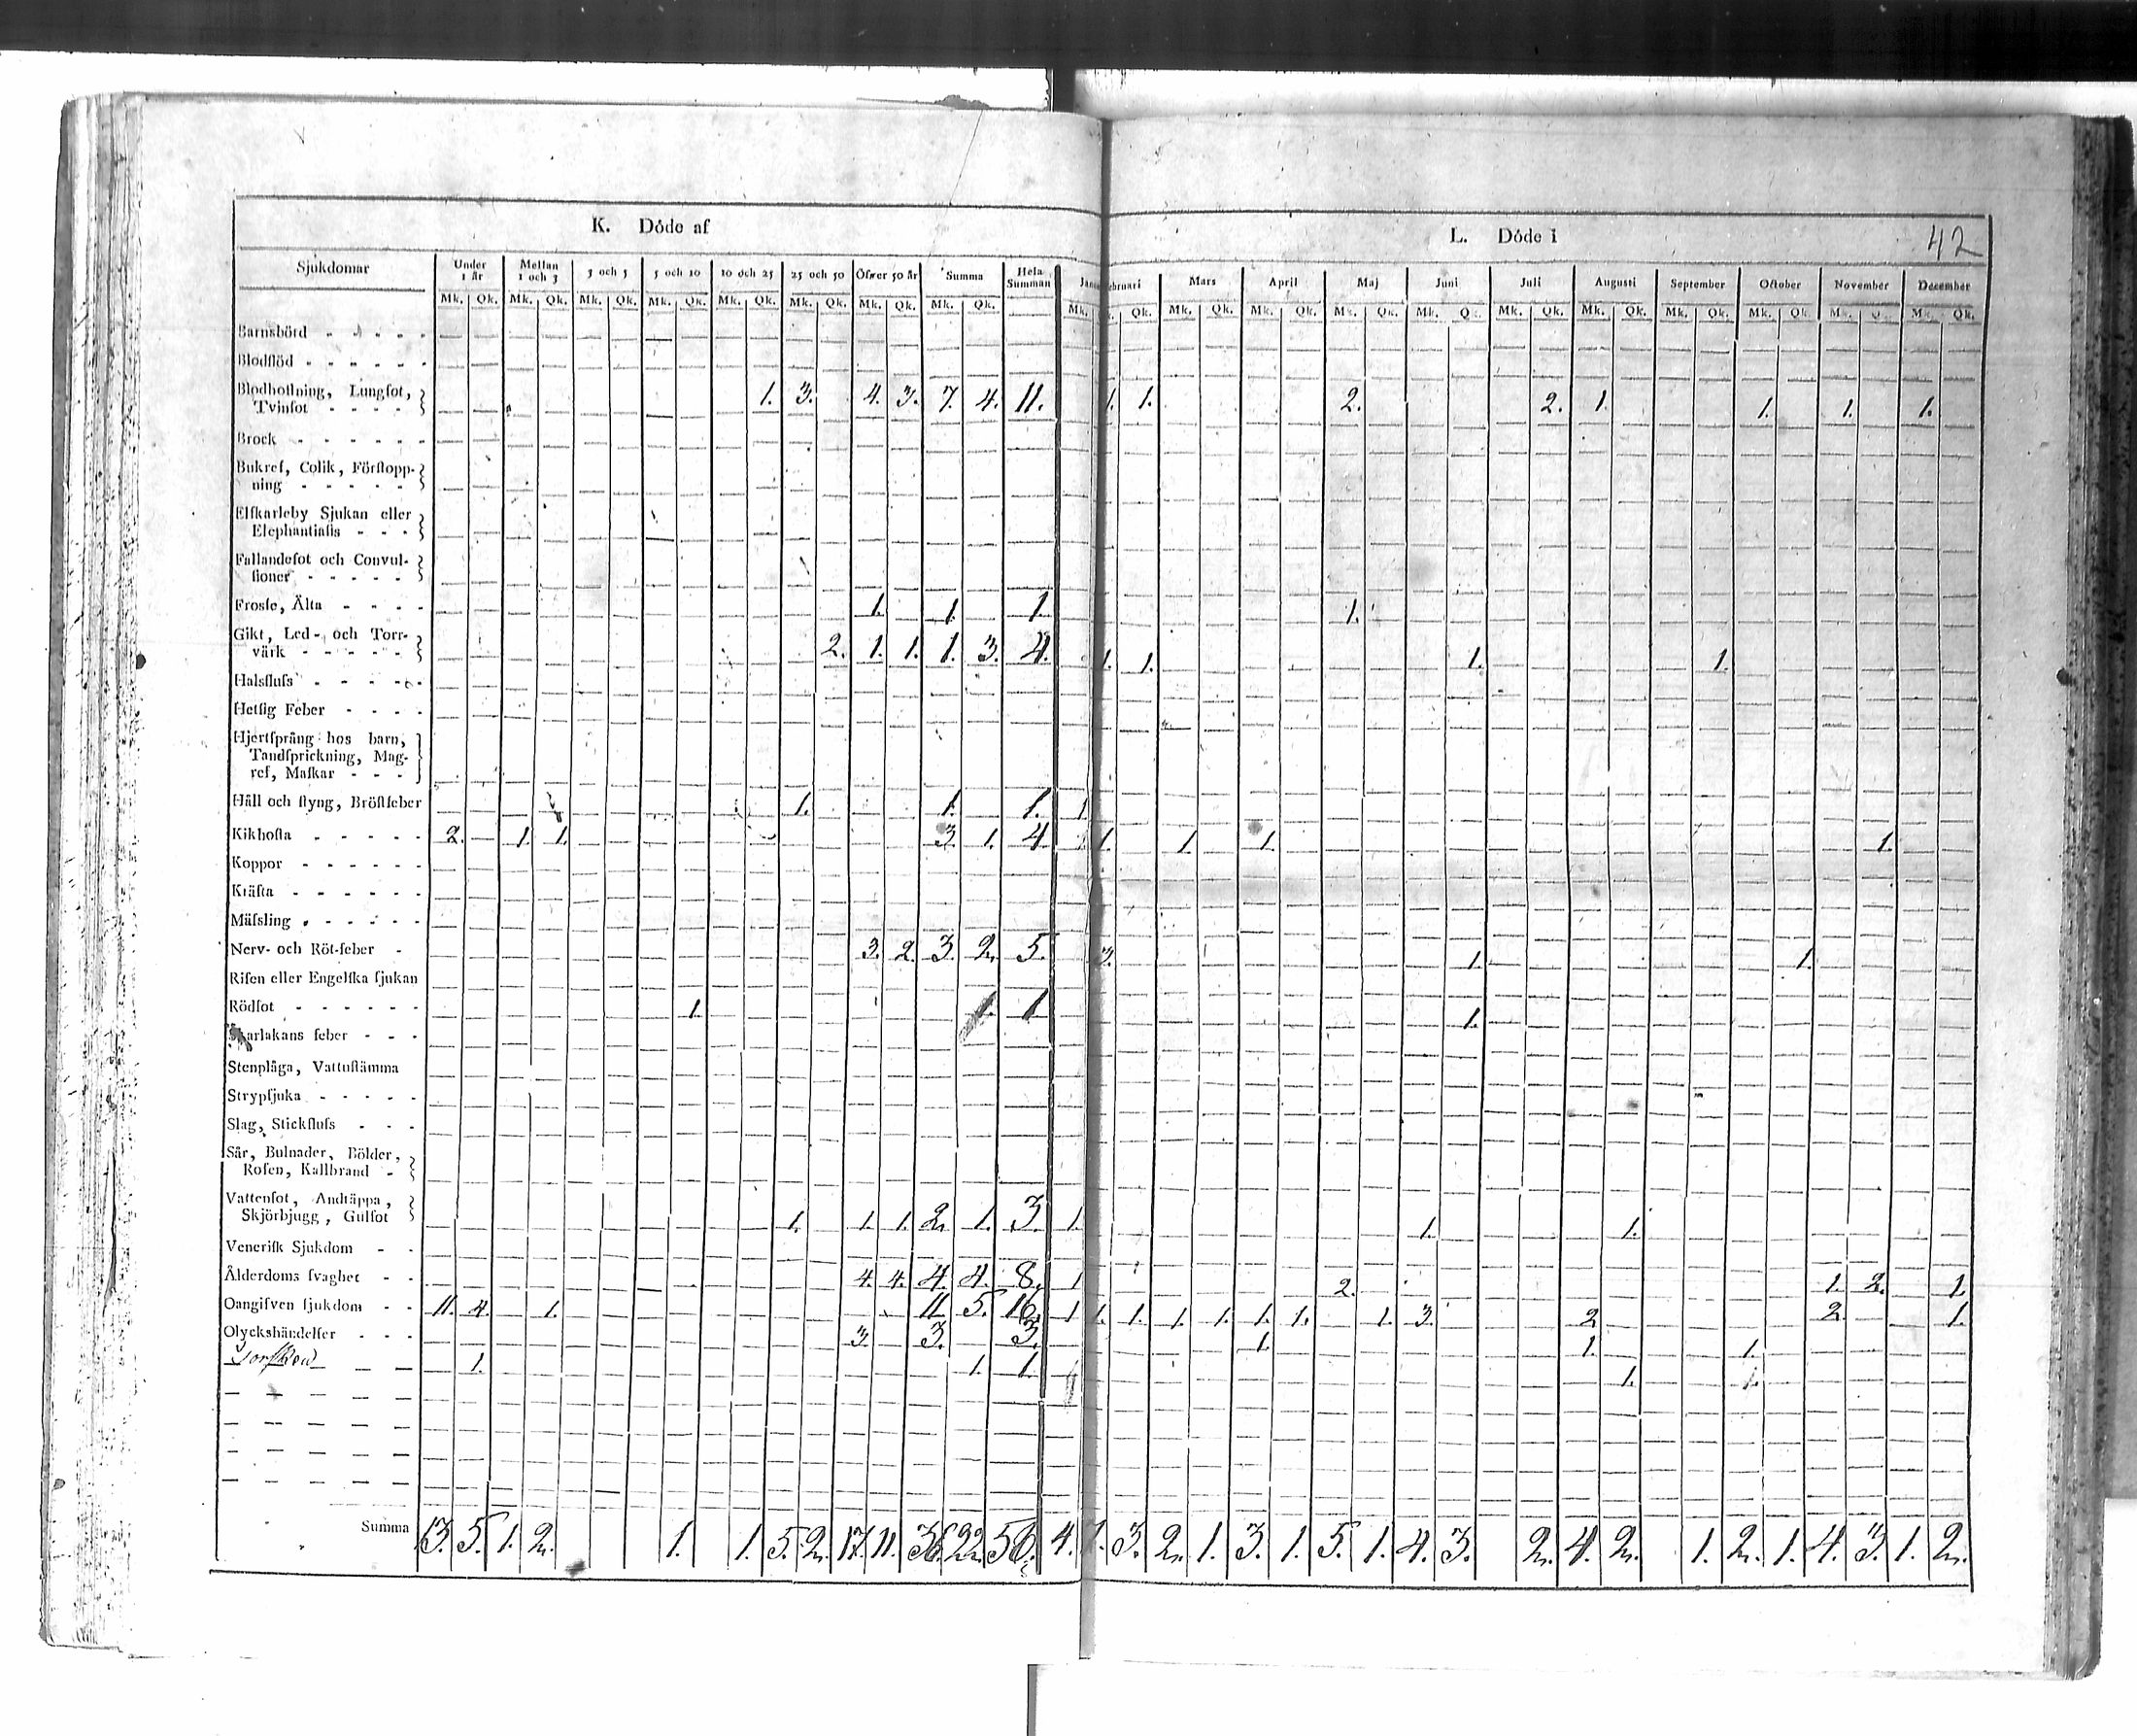 K. Döde af
L. Döde i
42
Sjukdomar
Under 1 år
Mellan 1 och 3
3 och 5
5 och 10
10 och 25
25 och 50
Öfver 50 år
Summa
Hela Summan
Mars
April
Maj
Juni
Juli
Augusti
September
October
November
December
Mk. Qk. Mk. Qk. Mk. Qk. Mk. Qk. Mk. Qk. Mk. Qk. Mk. Qk. Mk. Qk. Mk. Qk. Mk. Qk. Mk. Qk. Mk. Qk. Mk. Qk. Mk. Qk. Mk. Qk. Mk. Qk. Mk. Qk. Mk. Qk. Mk. Qk.
Barnsbörd
Blodflöd
Blodhoſtning, Lungſot,
Tvinſot 1. 3. 4. 3. 7. 4. 11. 1. 1. 2. 2. 1. 1. 1. 1.
Brock
Bukref, Colik, Förſtopp-
ning
Elfkarleby Sjukan eller
Elephantiaſis
Fallandeſot och Convul-
ſioner
Frosſe, Älta 1. 1. 1. 1.
Gikt, Led- och Torr-
värk 2. 1. 1. 1. 3. 4. 1. 1. 1. 1.
Halsfluſs
Hetſig Feber
Hjertſprång hos barn,
Tandſprickning, Mag-
ref, Maſkar
Håll och ſtyng, Bröſtfeber 1. 1. 1. 1.
Kikhoſta 2. 1. 1. 3. 1. 4. 1. 1. 1. 1.
Koppor
Kräfta
Mäſsling
Nerv- och Röt-feber 3. 2. 3. 2. 5. 3. 1. 1.
Riſen eller Engelſka ſjukan
Rödſot 1. 1. 1 1.
Skarlakans feber
Stenplåga, Vattuſtämma
Strypſjuka
Slag, Stickfluſs
Sår, Bulnader, Bölder,
Roſen, Kallbrand
Vattenſot, Andtäppa,
Skjörbjugg, Gulſot 1. 1. 1. 2. 1. 3. 1. 1. 1.
Veneriſk Sjukdom
Ålderdoms ſvaghet 4. 4. 4. 4. 8. 1 2. 1. 2. 1.
Oangifven ſjukdom 11. 4. 1. 11 5. 16. 1 1. 1. 1. 1. 1. 1. 1. 3. 2 2. 1.
Olyckshändelſer 3. 3. 3. 1. 1. 1.
Torſken 1. 1. 1. 1. 1.
Summa 13. 5. 1. 2. 1. 1. 5. 2. 17. 11. 36. 22. 58. 4. 1. 3. 2. 1. 3. 1. 5. 1. 4. 3. 2. 4. 2. 1. 2. 1. 4. 3. 1. 2.